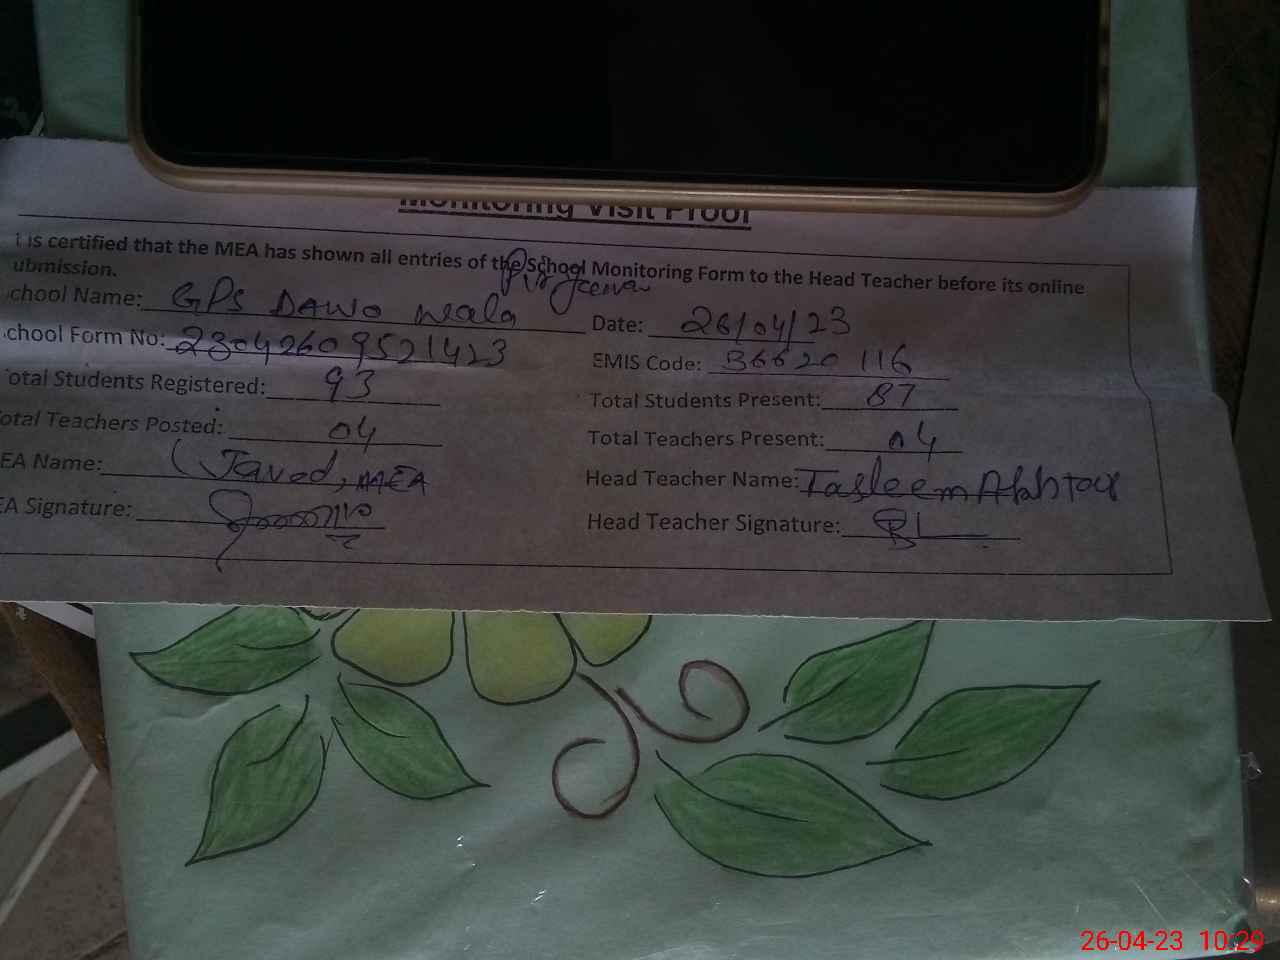 Monitoring Visit Proof
t is certified that the MEA has shown all entries of the School Monitoring Form to the Head Teacher before its online
ubmission.
chool Name: GPS DAWO Wala Pir Jeevan
Date: 26/04/23
chool Form No: 23042609521423
EMIS Code: 36620116
otal Students Registered: 93
Total Students Present: 87
otal Teachers Posted: 04
Total Teachers Present: 04
EA Name: Javed, MEA
Head Teacher Name: Tasleem Akhtar
EA Signature:
Head Teacher Signature:
26-04-23 10:29